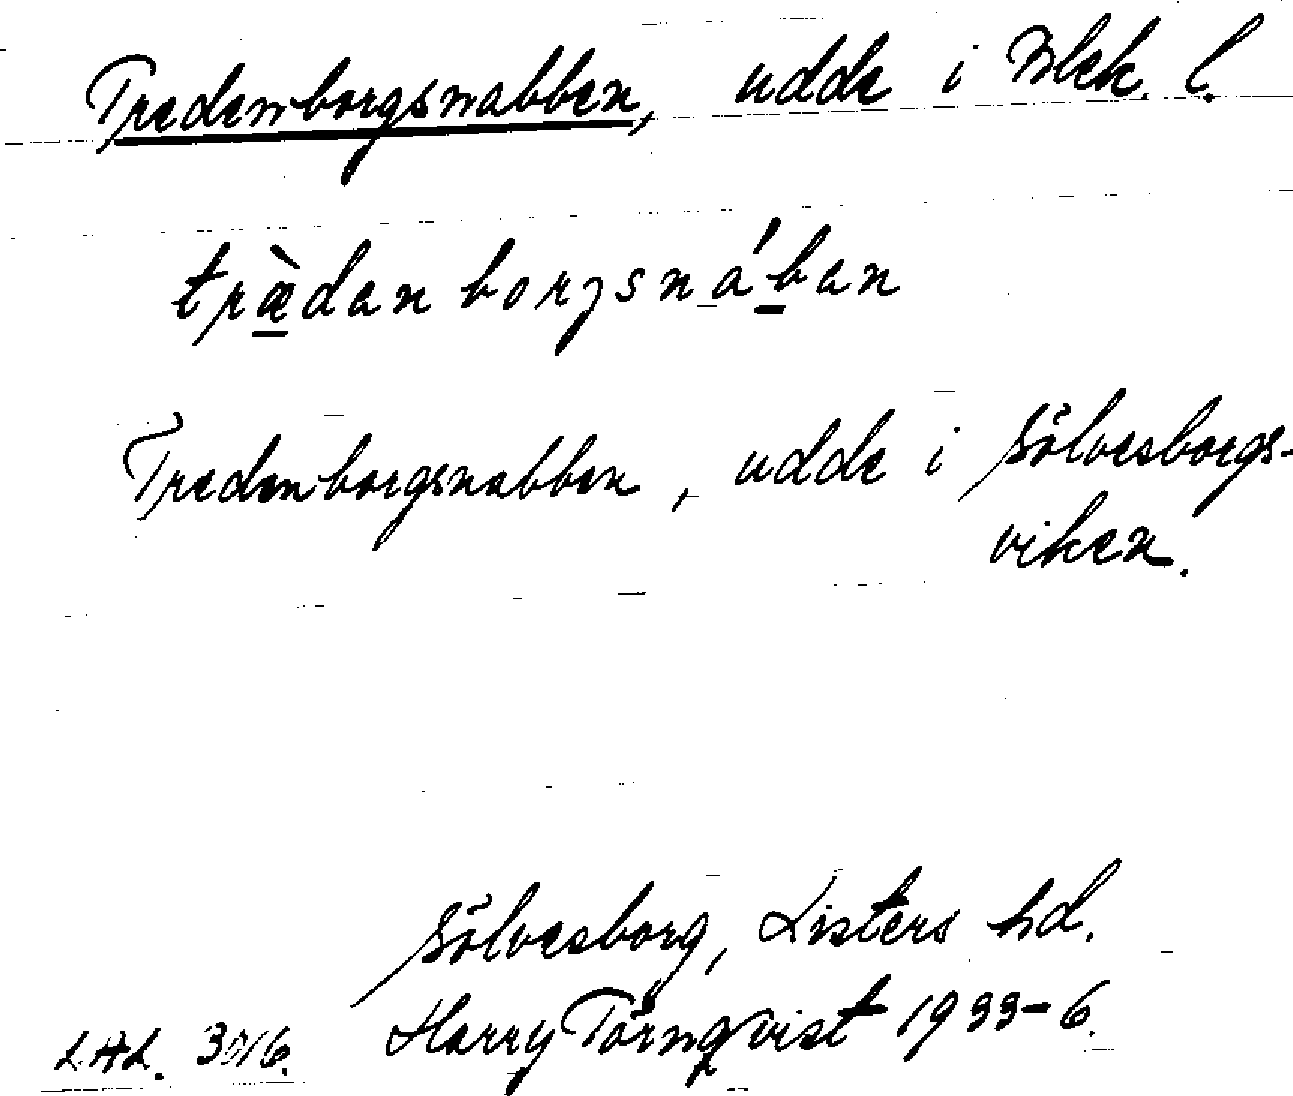 Tredenborgsnabben, udde i Blek. l.
træ̀danborgsnában
Tredenborgsnabben, udde i Sölvesborgs-
viken.
Sölvesborg, Listers hd.
L.A.L. 3016. Harry Törnqvist 1933-6.